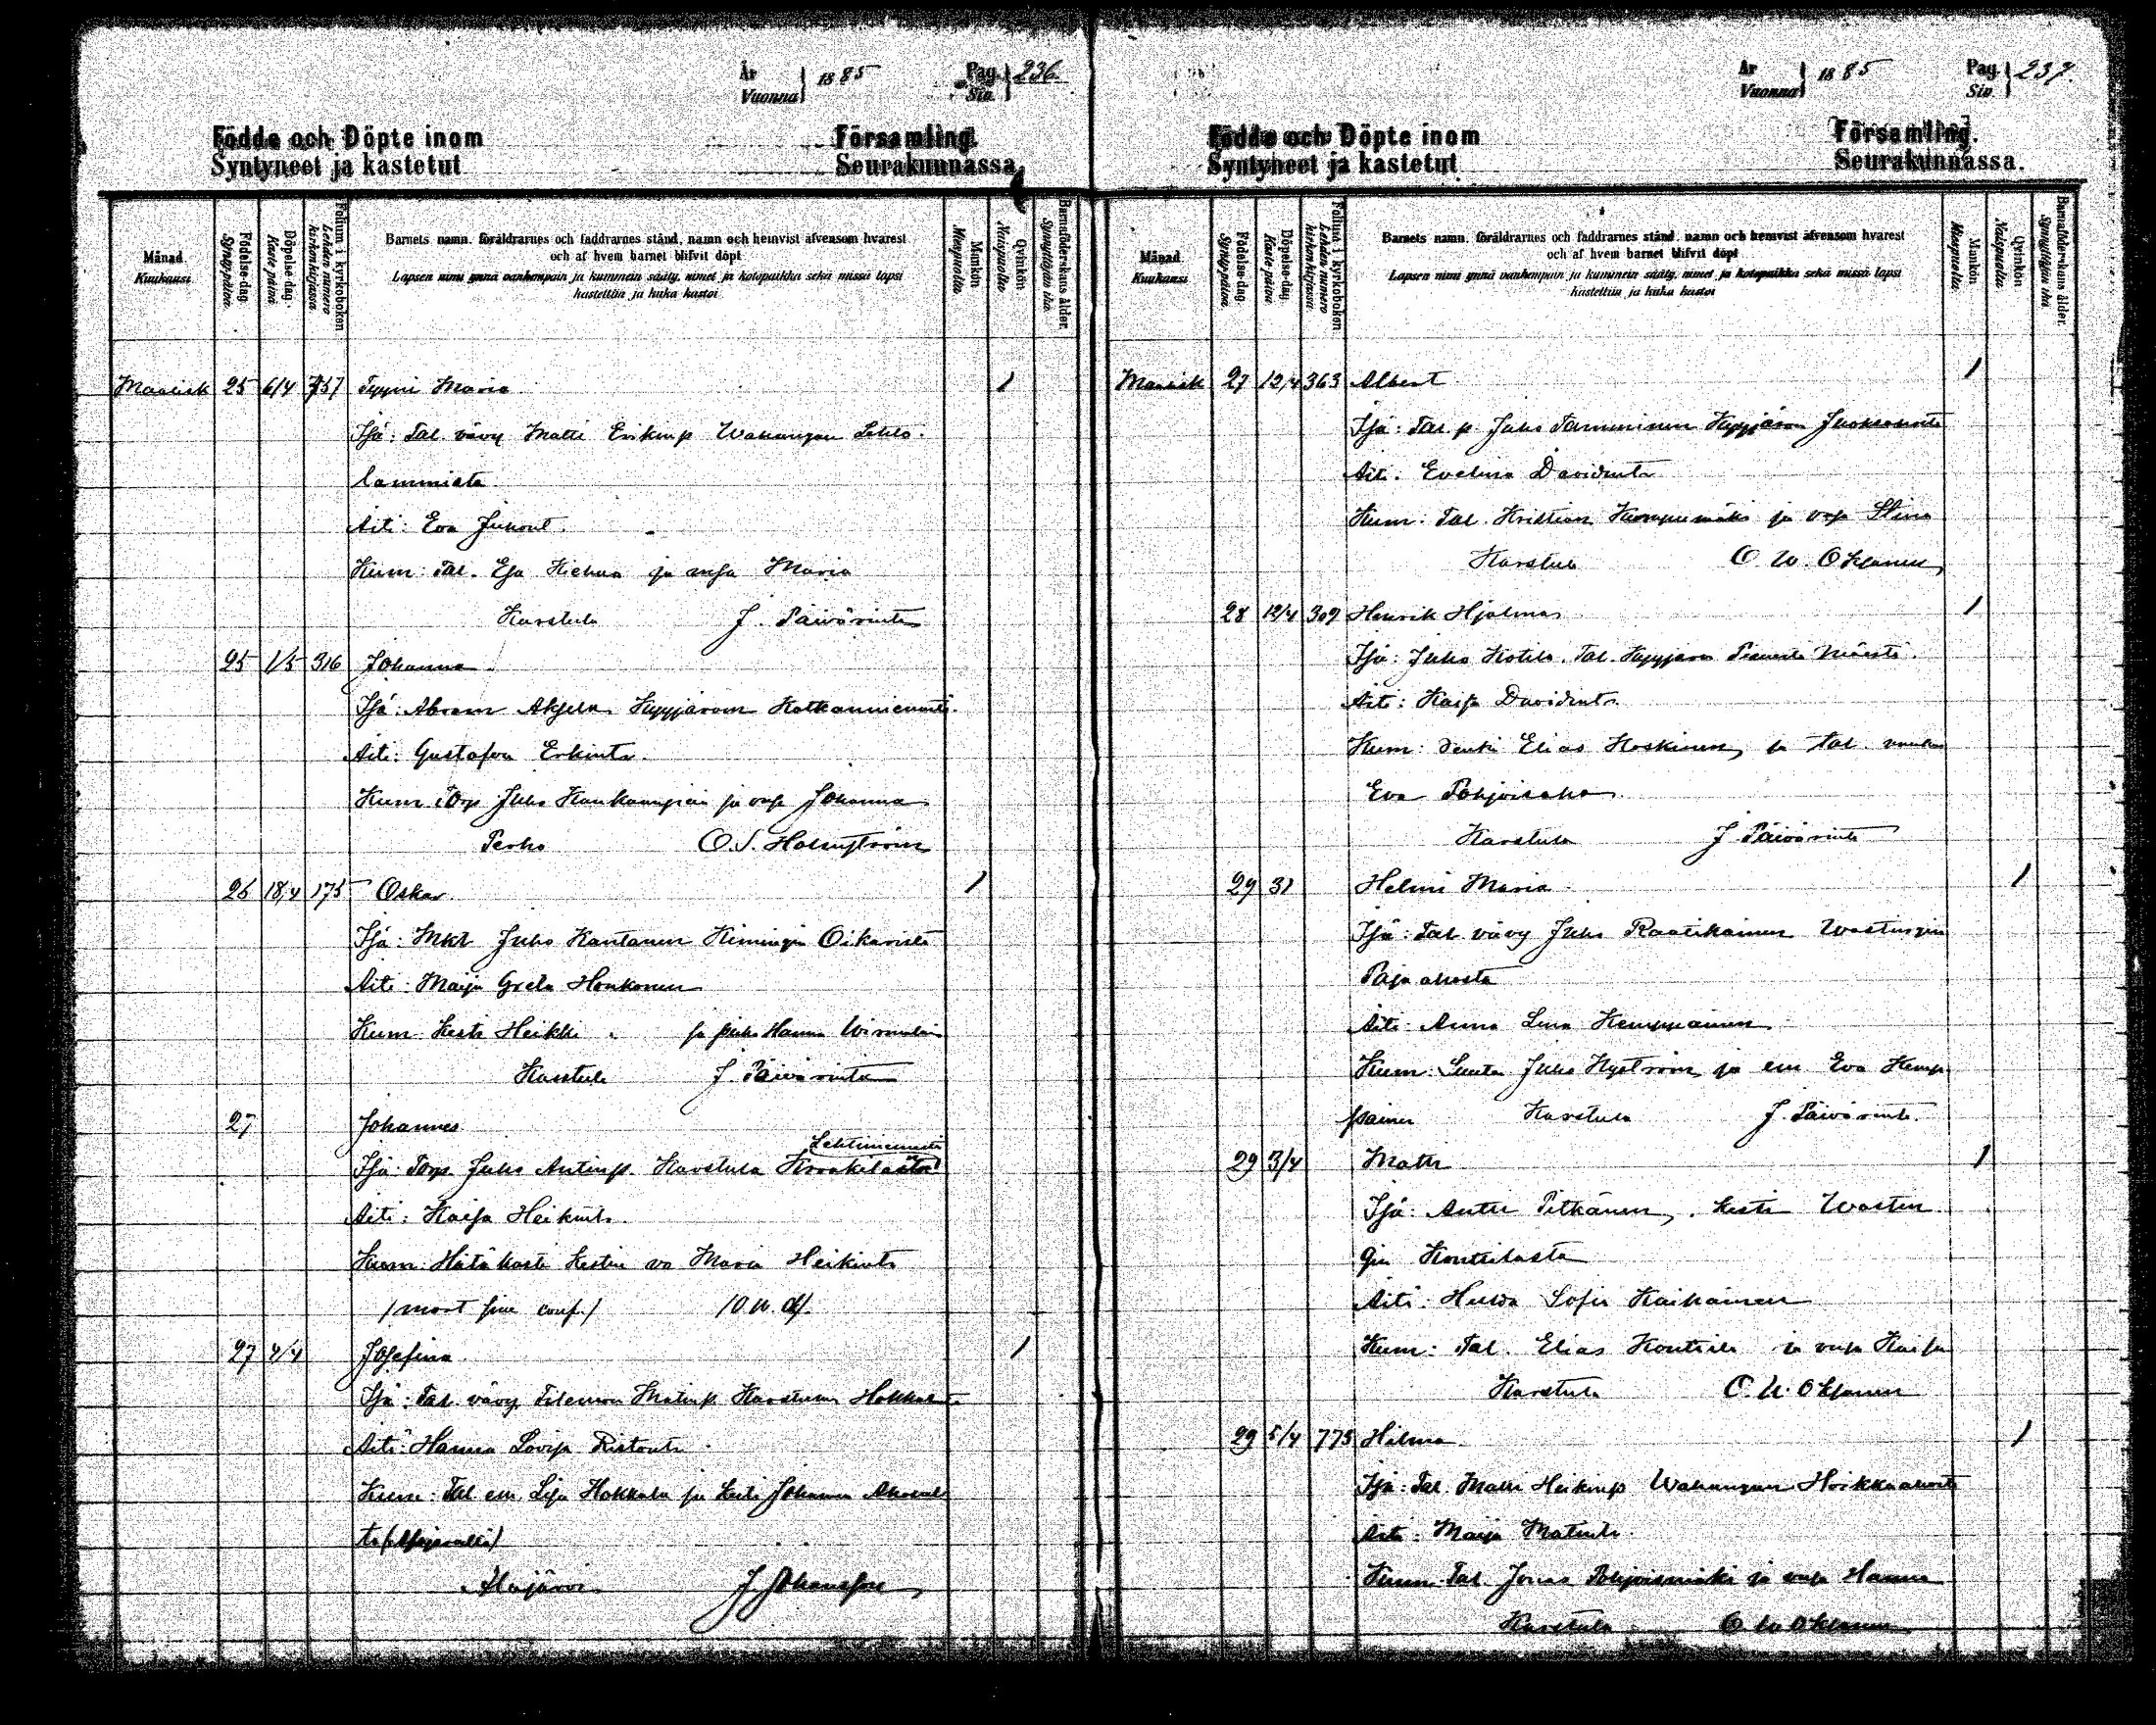 År
Vuonna
1885
Pag.
Siv.
236.
Födde och Döpte inom Församling.
Syntyneet ja kastetut Seurakunnassa.
Månad
Kuukausi
Födelse-dag.
Syntymä-päivä.
Döpelse-dag.
Kaste päivä
Folium i kyrkoboken
Lehden numero kirkonkirjassa
Barnets namn, föräldrarnes och faddrarnes stånd, namn och hemvist äfvensom hvarest
och af hvem barnet blifvit döpt
Lapsen nimi ynnä vanhempain ja kummein sääty, nimet ja kotopaikka sekä missä lapsi
kastettiin ja kuka kastoi
Mankön
Miespuolta.
Qvinkön
Naispuolta
Barnaföderskans ålder.
Synnyttäjän ikä
Maalisk 25 6/4 757 Tyyni Maria 1
Isä: Tal. vävy Matti Erikinp Wahangan Lehto
lammista
Äiti: Eva Juhont.
Kum: Tal. Esa Hiekua ja vmsa Maria
Karstula J. Päivärinta
25 1/5 316 Johanna
Isä: Abram Aksela Kyyjärven Hotkanniemeltä
Äiti: Gustafva Erkintr
Kum: Torp Juho Kankaanpää ja vmsa Johanna
Perho O. S. Holmström
26 18/4 175 Oskar. 1
Isä: Mkt Juho Kantanen Kimingin Oikarista
Äiti: Maija Greta Honkonen
Kum: Kesti Heikki ja piika Hanna
Karstula J. Päivärinta
27 Johannes
Lehtiniemestä
Isä: Torp. Juho Antinp. Karstula
Äiti: Kaisa Heikint.
Kum: Hätäkaste Kestin vo Maria Heikint
/mort sine conf./ /O.W.O/.
27 4/4 Josefina. 1
Isä: Tal. vävy Filemon Matinp. Karstulan
Äiti: Hanna Lovisa Ristontr
Kum: Tal em. Lisa Hokkala ja Kesti Johanna
Alajärvi J Johansson
År
Vuonna
1885
Pag.
Siv.
237.
Födde och Döpte inom Församling.
Syntyneet ja kastetut Seurakunnassa.
Månad
Kuukausi
Födelse-dag.
Syntymä-päivä.
Döpelse-dag.
Kaste päivä
Folium i kyrkoboken
Lehden numero kirkonkirjassa
Barnets namn, föräldrarnes och faddrarnes stånd, namn och hemvist äfvensom hvarest
och af hvem barnet blifvit döpt
Lapsen nimi ynnä vanhempain ja kummein sääty, nimet ja kotopaikka sekä missä lapsi
kastettiin ja kuka kastoi
Mankön
Miespuolta
Qvinkön
Naispuolta
Barnaföderskans ålder.
Synnyttäjän ikä
Maalisk 27 12/4 363 Albert 1
Isä: Tal. p. Juho Tamminen Kyyjärven
Äiti: Evelina Davidintr
Kum: Tal. Kristian Kumpumäki ja vmsa Stina
Karstula O. W. Oksanen
28 12/4 309 Henrik Hjalmar 1
Isä: Juho Kotila. Tal. Kyyjärven
Äiti: Kaisa Davidintr.
Kum: renki Elias Koskinen, ja Tal. vaimo
Eva Pohjoisaho
Karstula J. Päivärinta
29 31 Helmi Maria 1
Isä: Tal. vävy Juho Raatikainen Wastingin
Paja ahosta
Äiti: Anna Lena Kemppainen
Kum: Juho Nyström ja em Eva Kemp
painen Karstula J. Päivärinta.
29 3/4 Matti 1
Isä: Antti Pitkänen, Kesti Wastin
gin Konttilasta
Äiti: Hulda Sofia Kaikainen
Kum: Tal. Elias Konttila ja vmsa Kaisa
Karstula O. W. Oksanen
29 5/4 775 Hilma 1
Isä: Tal. Matti Heikinp Wahangan Hoikkaaholta
Äiti: Maija Matintr
Kum: Tal. Jonas Pohjoismäki ja vmsa Hanna
Karstula O. W. Oksanen